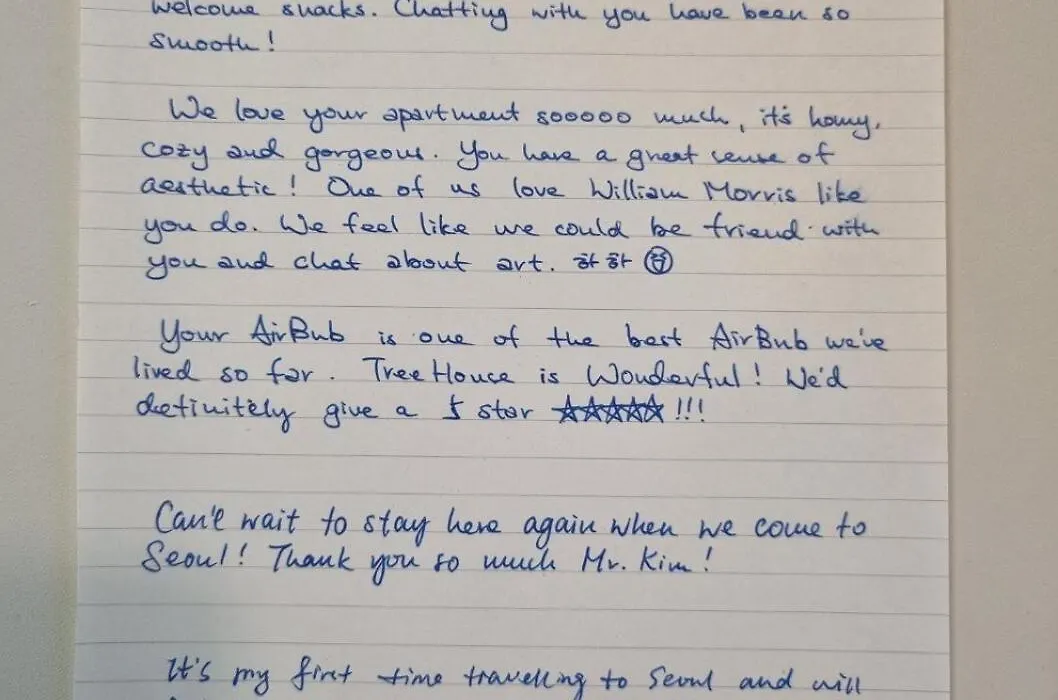 welcome snacks. Chatting with you have been so
smooth!
We love your apartment sooooo much, it's homy,
cozy and gorgeous. You have a great sense of
aesthetic! One of us love William Morris like
you do. We feel like we could be friend with
you and chat about art. 하하
Your AirBnb is one of the best AirBnb we've
lived so far. TreeHouse is Wonderful! We'd
definitely give a 5 star ☆☆☆☆☆ !!!
Can't wait to stay here again when we come to
Seoul! Thank you so much Mr. Kim!
It's my first time travelling to Seoul and will